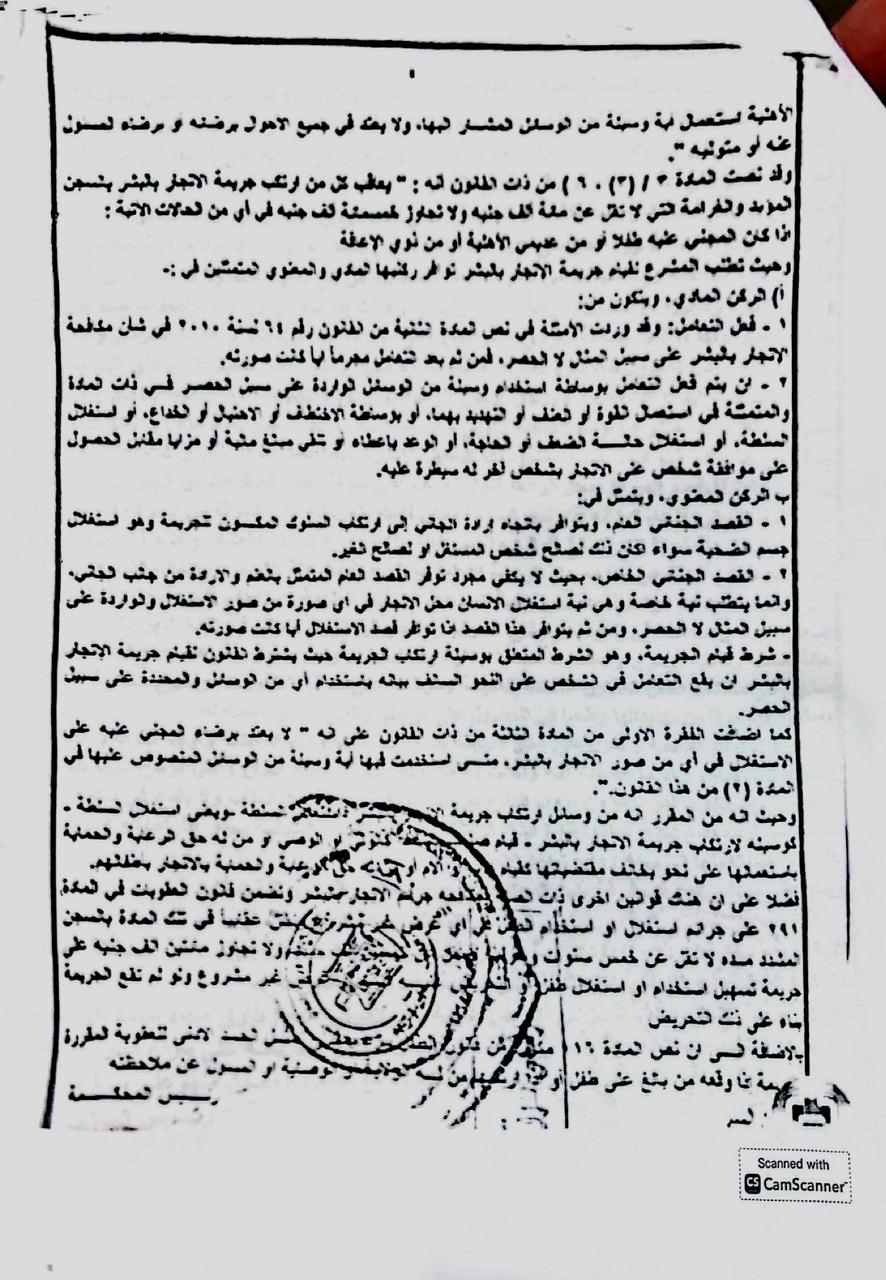 الأهلية استعمال أية وسيلة من الوسائل المشار اليها، ولا يعتد في جميع الاحوال برضائه او برضاء المسئول
عنه أو متوليه ".
وقد نصت المادة ٣ / (٣) ، ٦ ) من ذات القانون انه : " يعاقب كل من ارتكب جريمة الاتجار بالبشر بالسجن
المؤبد والغرامة التي لا تقل عن مائة ألف جنيه ولا تجاوز خمسمائة الف جنيه في أي من الحالات الاتية :
اذا كان المجني عليه طفلا أو من عديمي الأهلية أو من ذوي الإعاقة
وحيث تطلب المشرع لقيام جريمة الاتجار بالبشر توافر ركنيها المادي والمعنوي المتمثلين في :-
أ) الركن المادي، ويتكون من:
١ - فعل التعامل: وقد وردت الأمثلة في نص المادة الثانية من القانون رقم ٦٤ لسنة ٢٠١٠ في شان مكافحة
الإتجار بالبشر على سبيل المثال لا الحصر، فمن ثم يعد التعامل مجرماً أياً كانت صورته.
٢ - ان يتم فعل التعامل بوساطة استخدام وسيلة من الوسائل الواردة على سبيل الحصر في ذات المادة
والمتمثلة في استعمال القوة أو العنف أو التهديد بهما، أو بوساطة الاختطاف أو الاحتيال أو الخداع، أو استغلال
السلطة، أو استغلال حالة الضعف أو الحاجة، أو الوعد باعطاء أو تلقي مبالغ مالية أو مزايا مقابل الحصول
على موافقة شخص على الاتجار بشخص آخر له سيطرة عليه.
ب الركن المعنوي، ويتمثل في:
١ - القصد الجنائي العام، ويتوافر باتجاه ارادة الجاني إلى ارتكاب السلوك المكون للجريمة وهو استغلال
جسم الضحية سواء اكان ذلك لصالح شخص المستغل او لصالح الغير.
٢ - القصد الجنائي الخاص، بحيث لا يكفي مجرد توفر القصد العام المتمثل بالعلم والارادة من جانب الجاني،
وانما يتطلب نية خاصة وهي نية استغلال الانسان محل الاتجار في اي صورة من صور الاستغلال والواردة على
سبيل المثال لا الحصر، ومن ثم يتوافر هذا القصد اذا توافر قصد الاستغلال أيا كانت صورته.
- شرط قيام الجريمة، وهو الشرط المتعلق بوسيلة ارتكاب الجريمة حيث يشترط القانون لقيام جريمة الاتجار
بالبشر ان يقع التعامل في الشخص على النحو السالف بيانه باستخدام أي من الوسائل والمحددة على سبيل
الحصر.
كما اضافت الفقرة الاولى من المادة الثالثة من ذات القانون على انه " لا يعتد برضاء المجني عليه على
الاستغلال في أي من صور الاتجار بالبشر، متى استخدمت فيها أية وسيلة من الوسائل المنصوص عليها في
المادة (٢) من هذا القانون.".
وحيث انه من المقرر انه من وسائل ارتكاب جريمة الاتجار بالبشر استغلال السلطة - ويعني استغلال السلطة -
كوسيلة لارتكاب جريمة الاتجار بالبشر - قيام كالولي او الوصي او من له حق الرعاية والحماية
باستعمالها على نحو يخالف مقتضياتها كقيام والام أو من له الرعاية والحماية بالاتجار بطفلهم.
فضلا على ان هناك قوانين اخرى ذات الصلة جرائم الاتجار بالبشر وتضمن قانون العقوبات في المادة
٢٩١ على جرائم استغلال او استخدام الطفل في أي غرض غير مشروع في تلك المادة بالسجن
المشدد مدة لا تقل عن خمس سنوات وغرامة جنيه ولا تجاوز مائتين الف جنيه على
جريمة تسهيل استخدام او استغلال طفل أو غير مشروع ولو لم تقع الجريمة
بناء على ذلك التحريض
بالاضافة الى ان نص المادة ١١٦ من قانون الحد الادنى للعقوبة المقررة
اذا وقعت من بالغ على طفل أو من له الولاية أو الوصاية او المسئول عن ملاحظته
رئيس المحكمة
Scanned with
CS CamScanner